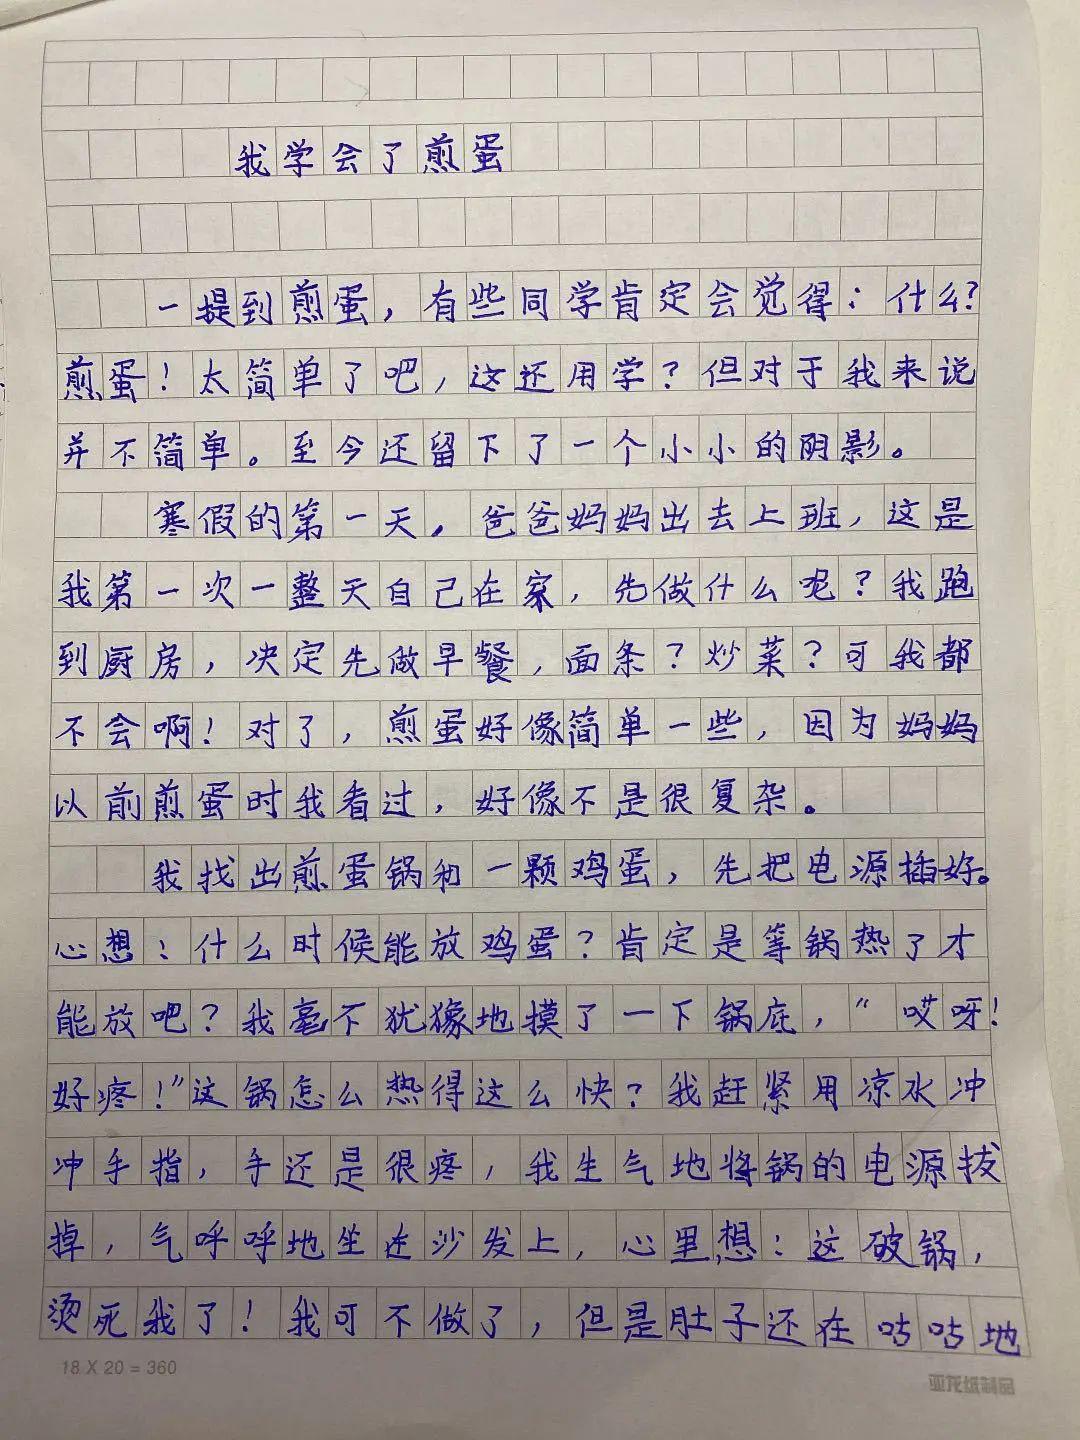 我学会了煎蛋
一提到煎蛋，有些同学肯定会觉得：什么？
煎蛋！太简单了吧，这还用学？但对于我来说
并不简单。至今还留下了一个小小的阴影。
寒假的第一天，爸爸妈妈出去上班，这是
我第一次一整天自己在家，先做什么呢？我跑
到厨房，决定先做早餐，面条？炒菜？可我都
不会啊！对了，煎蛋好像简单一些，因为妈妈
以前煎蛋时我看过，好像不是很复杂。
我找出煎蛋锅和一颗鸡蛋，先把电源插好。
心想：什么时候能放鸡蛋？肯定是等锅热了才
能放吧？我毫不犹豫地摸了一下锅底，“哎呀！
好疼！”这锅怎么热得这么快？我赶紧用凉水冲
冲手指，手还是很疼，我生气地将锅的电源拔
掉，气呼呼地坐在沙发上，心里想：这破锅，
烫死我了！我可不做了，但是肚子还在咕咕地
18 X 20 = 360
亚龙纸制品